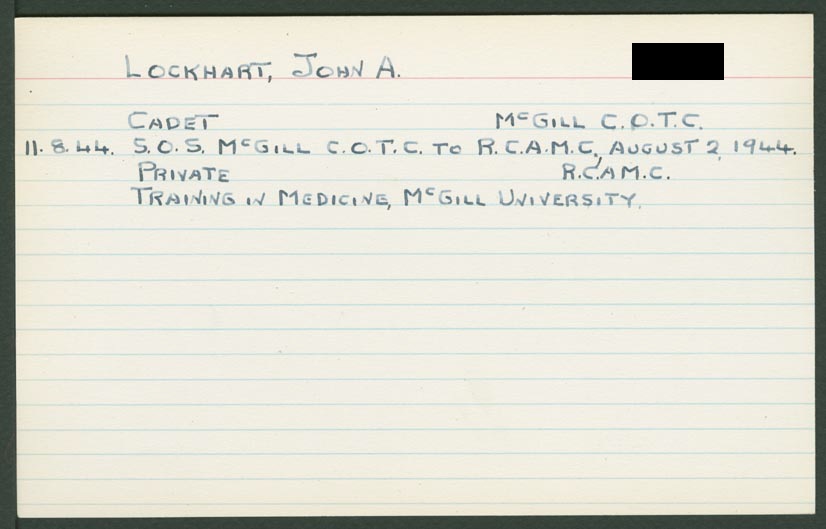 LOCKHART, JOHN A.
CADET McGILL C.O.T.C.
11.8.44. S.O.S. McGILL C.O.T.C. TO R.C.A.M.C., AUGUST 2, 1944.
PRIVATE R.C.A.M.C.
TRAINING IN MEDICINE, McGILL UNIVERSITY.